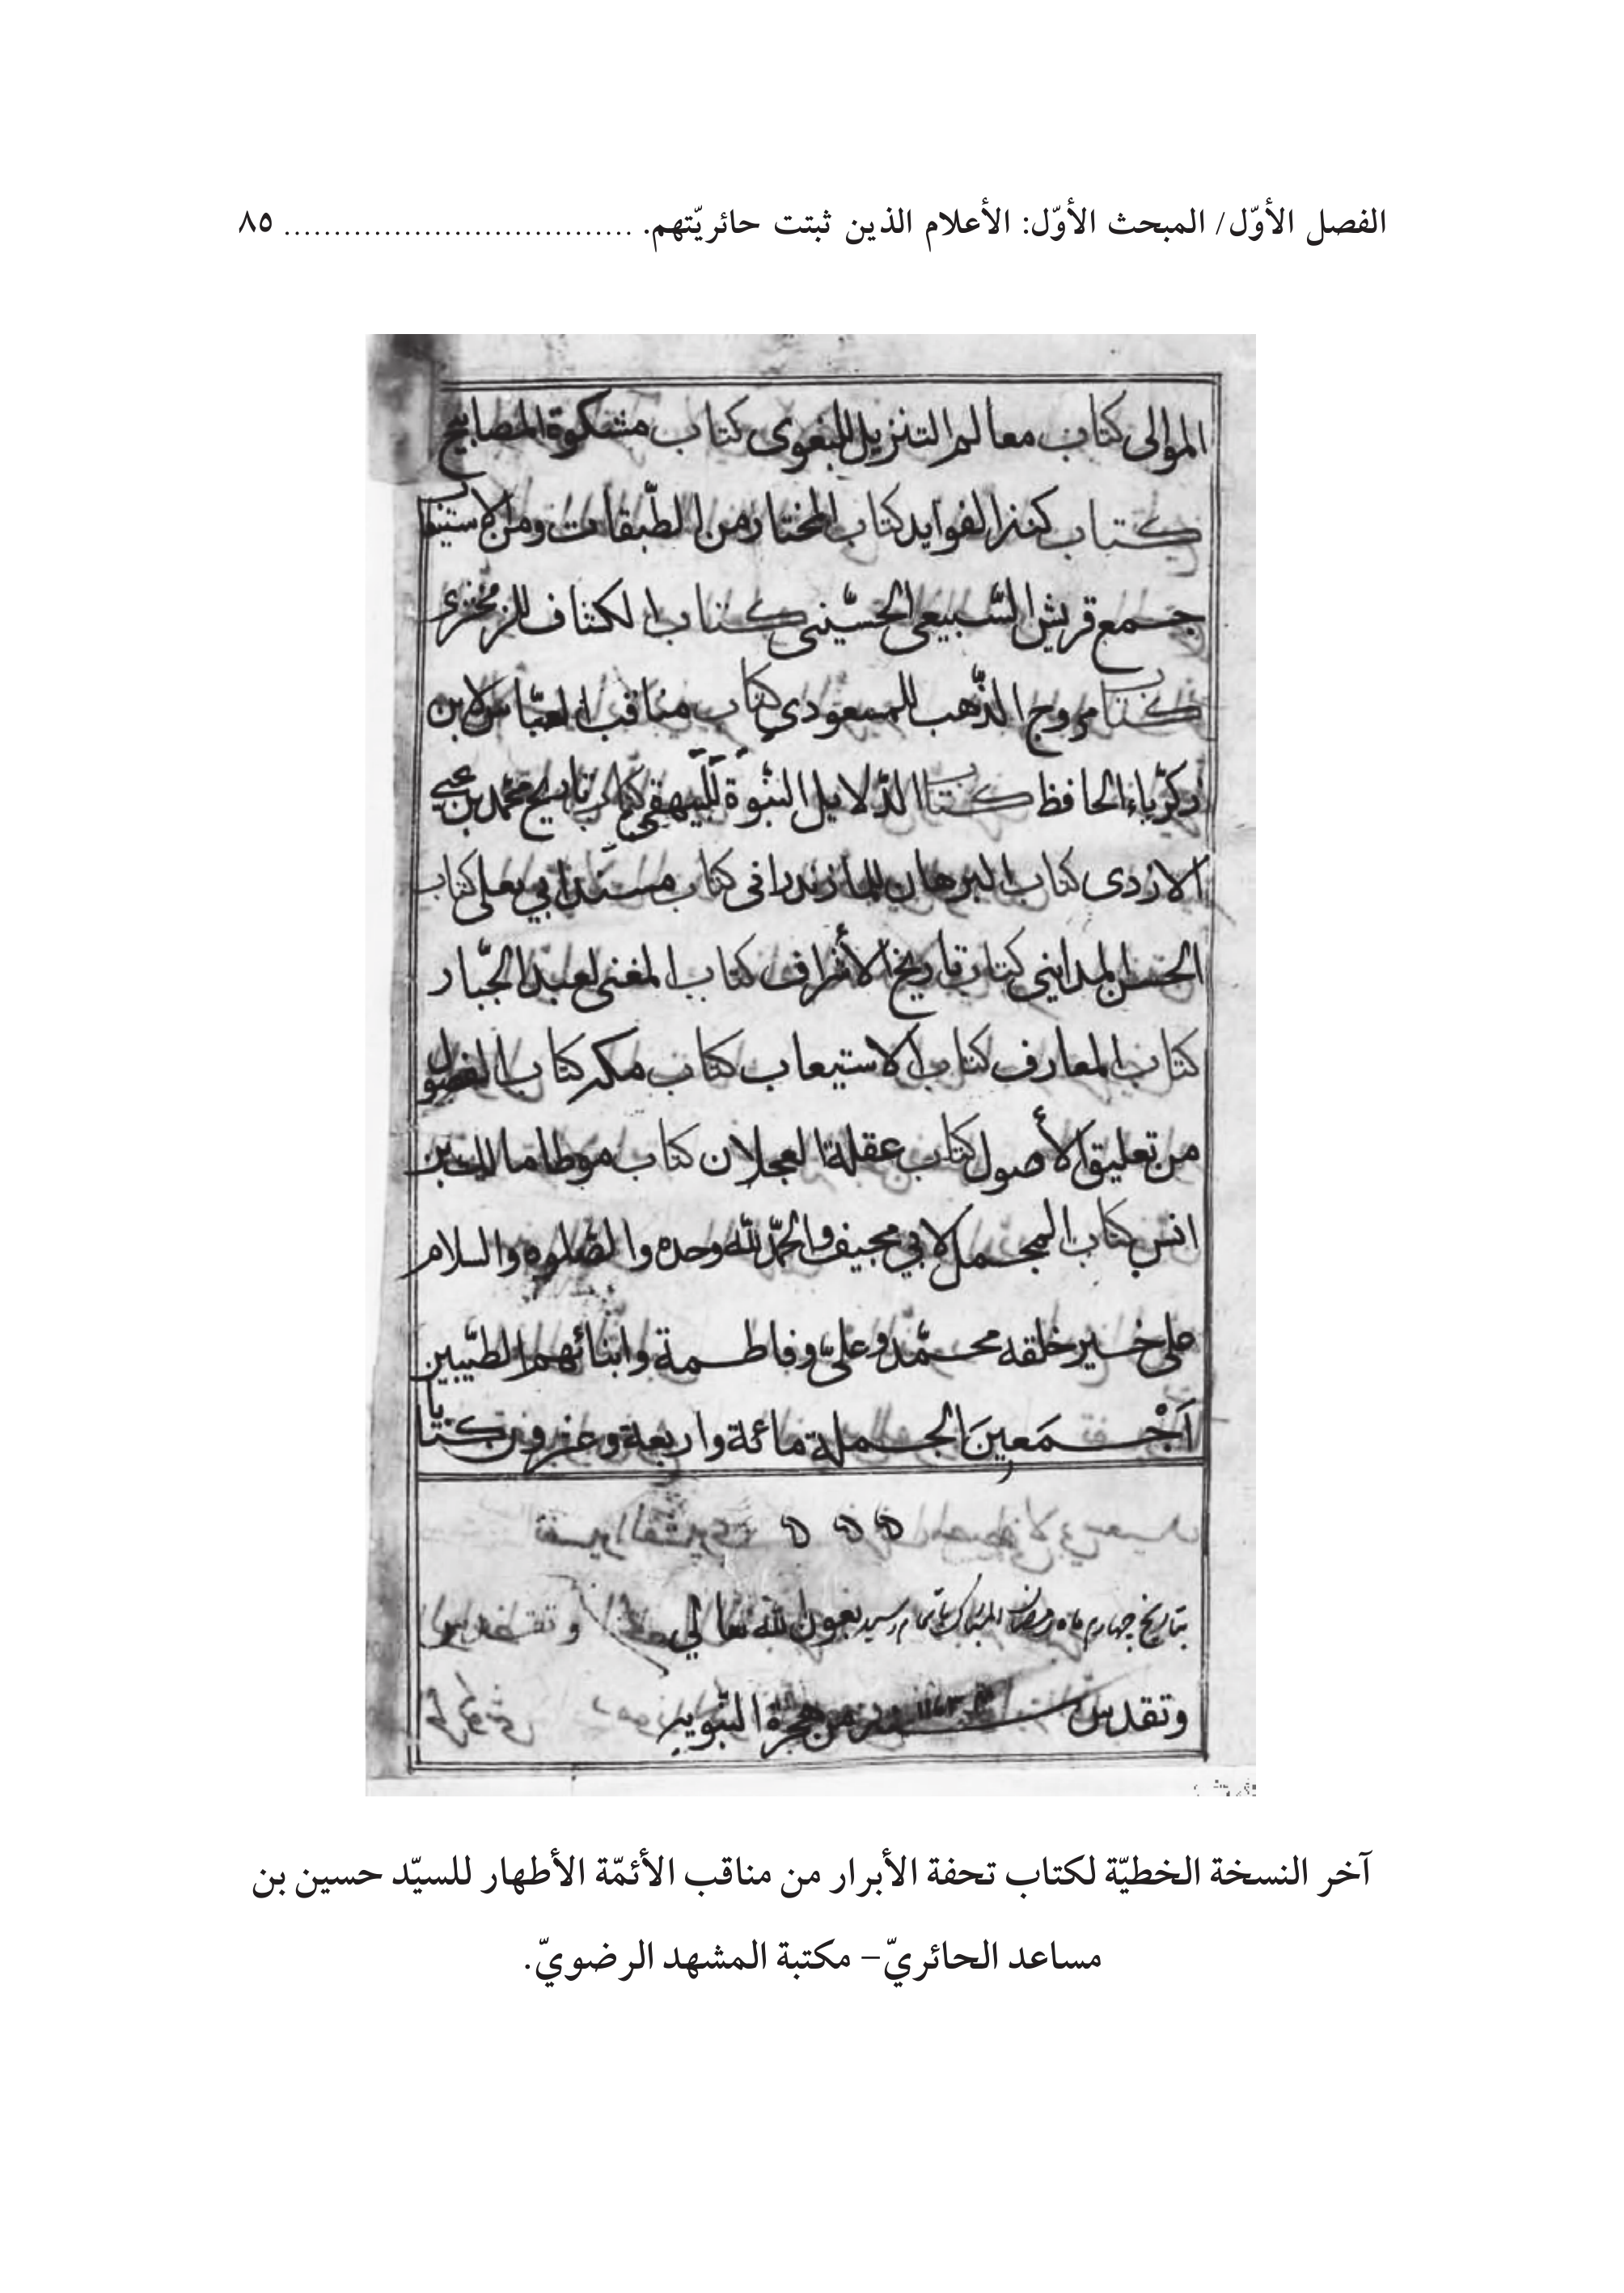 الفصل الأوّل/ المبحث الأوّل: الأعلام الذين ثبتت حائريّتهم. ................................. ٨٥
الموالى كتاب معالم التنزيل للبغوى كتاب مشكوة المصابيح
كتاب كنز الفوايد كتاب المختار من الطّبقات ومن الاستيعاب
جمع قريش السّبيعى الحسّينى كتاب الكشاف للزمخشرى
كتاب مروج الذّهب للمسعودي كتاب مناقب العبّاس لابن
زكرّياء الحافظ كتاب الدّلايل النبّوة للبيهقى كتاب تاريخ محمّد بن
الازدى كتاب البرهان للمازندرانى كتاب مسند ابي يعلى كتاب
الحسن المداينى كتاب تاريخ الأشراف كتاب المغنى لعبد الجبّار
كتاب المعارف كتاب الاستيعاب كتاب كتاب الفصول
من تعليق الأصول كتاب عقلة العجلان كتاب موطا مالك بن
انس كتاب المجمل لابي والحمّد لله وحده والصّلوه والسلام
على خير خلقه محمّد وعلىّ وفاطمة وابنائهم الطيّبين
اَجْمَعينَ الجملة مائة واربعة وعشرون كتابا
ه ه ه
بتاريخ چهارم ماه رمضان المبارك باتمام رسيد بعون الله تعالي
وتقدس سنه من هجرة النبّويه
آخر النسخة الخطيّة لكتاب تحفة الأبرار من مناقب الأئمّة الأطهار للسيّد حسين بن
مساعد الحائريّ– مكتبة المشهد الرضويّ.